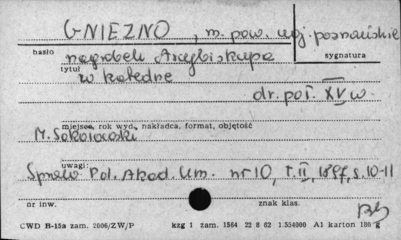 GNIEZNO, m. pow. woj. poznańskie
hasło
sygnatura
nagrobek Arcybiskupa
tytuł
w katedrze
dr. poł. XV w.
miejsce, rok wyd., nakładca, format, objętość
M. Sokołowski
uwagi:
Spraw. Pol. Akad. Um. nr 10, T. II, 1897, s. 10-11
nr inw.
znak klas.
CWD B-15a zam. 2006/ZW/P kzg 1 zam. 1564 22 8 62 1.554000 A1 karton 186 g